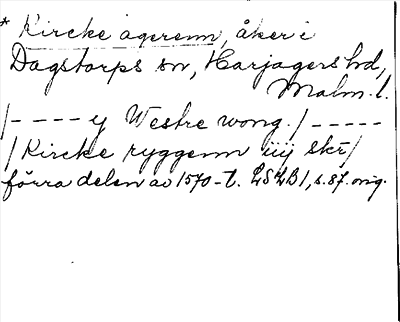 * Kircke agerenn, åker i
Dagstorps sn, Harjagers hd,
Malm. l.
/---- ij Westre wong. /-----
/Kircke ryggenn iiij skr/
förra delen av 1570-t. LSLB 1, s. 87. orig.